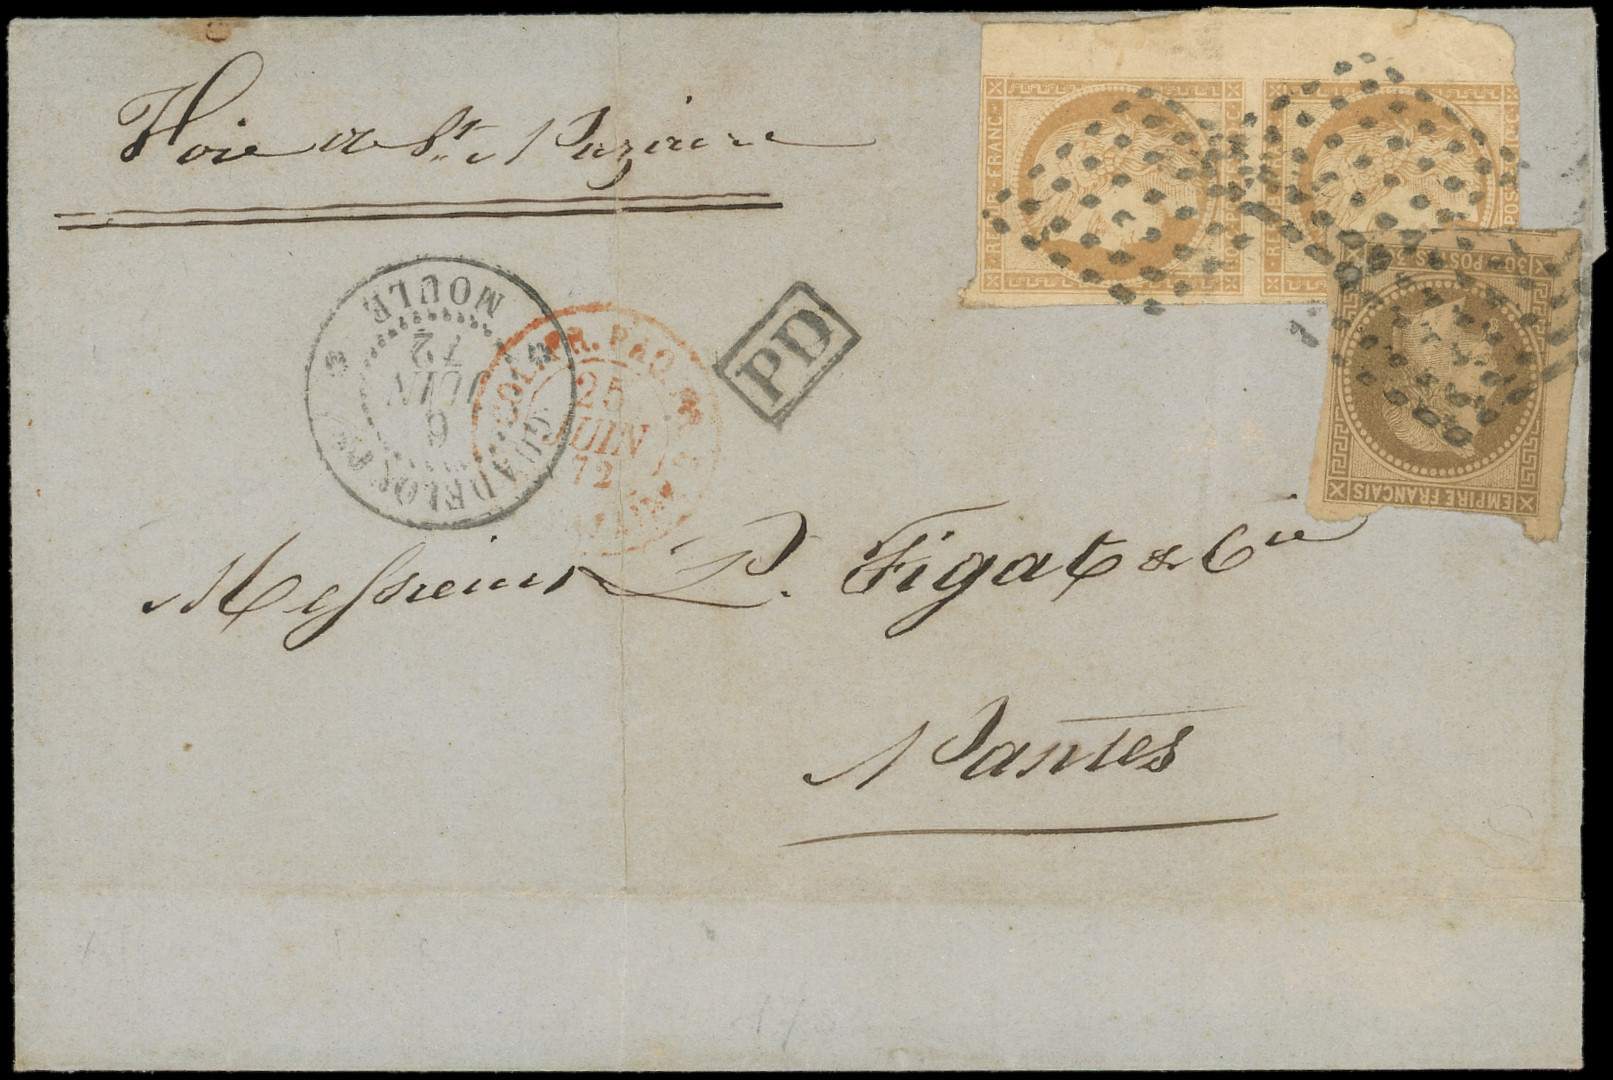 Voie de St. Nazaire
REPUB FRANC
POSTES
30 POSTES 30
EMPIRE FRANÇAIS
MOULE
6
JUIN
72
GUADELOUPE
COL. FR. PAQ.
25
JUIN
72
PD
Messieurs P. Figat & Cie
Nantes